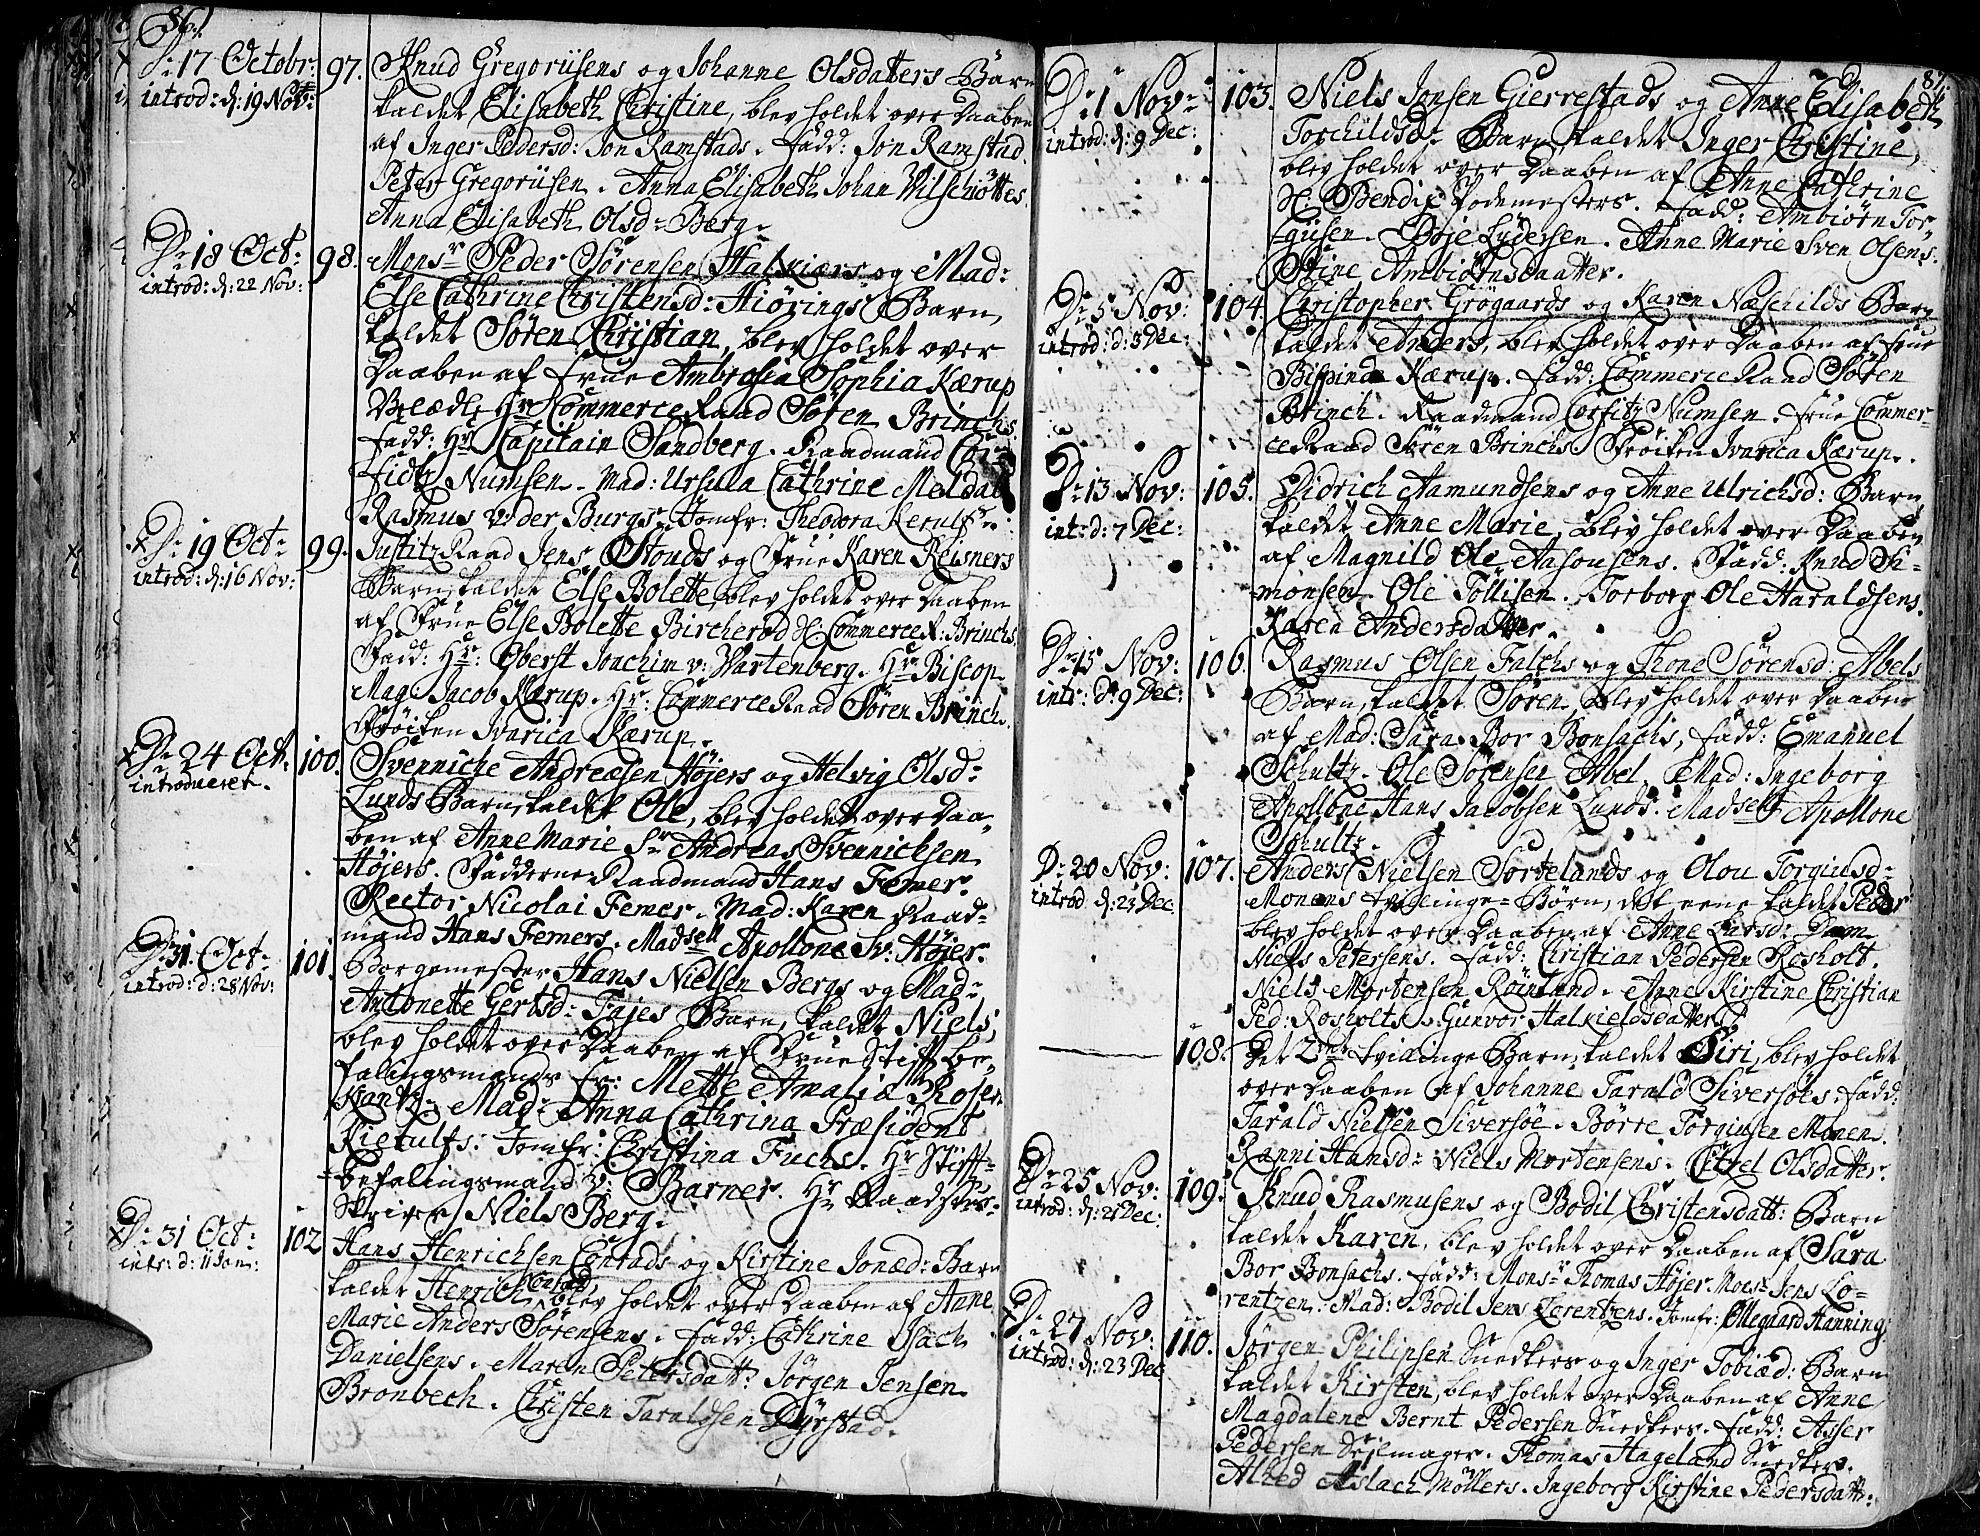 86.
D: 17 Octobr: 97. Knud Gregoriisens og Johanne Olsdatters Barn
introd: d: 19 Nov: kaldet Elisabeth Christine, blev holdet over Daaben
af Inger Pedersd: Jon Ramstads. Fadd: Jon Ramstad.
Peter Gregoriisen. Anna Elisabeth Johan Wilschiøttes
Anna Elisabeth Olsd: Berg.
D: 18 Oct: 98. Monsr Peder Sørensen Halkiærs og Mad:
introd: d: 22 Nov: Else Cathrine Christensd: Hiørings Barn
kaldet Søren Christian, blev holdet over
Daaben af Frue Ambrosia Sophia Kærup
Velædle Hr Commerce Raad Søren Brinchs.
Fadd: Hr Capitain Sandberg. Raadmand Cor-
fidtz Numsen. Mad: Ursula Cathrine Meldal
Rasmus v: der Burgs. Jomfr: Theodora
x D: 19 Oct: 99. Justitz Raad Jens Stouds og Frue Karen Reisners
introd: d: 16 Nov: Barn, kaldet Else Bolette, blev holdet over Daaben
af Frue Else Bolette Bircherod H: Commerce R: Brinchs
Fadd: Hr: Oberst Joachim v: Wartenberg. Hr Biscop
Mag: Jacob Kærup. Hr: Commerce Raad Søren Brinch.
Frøiken Ivarica Kærup.
x D: 24 Oct: 100. Svenniche Andreæsen Højers og Helvig Olsd:
introdueret. Lunds Barn, kaldet Ole, blev holdet over Daa-
ben af Anne Marie Sr Andreas Svennichsen
Højers. Fadderne Raadmand Hans Femer.
Rector Nicolai Femer. Mad: Karen Raad-
mand Hans Femers. Madsell Apollone Sv: Højer.
D: 31. Oct: 101. Borgemester Hans Nielsen Bergs og Mad:
introd: d: 28 Nov: Antonette Gertsd: Fajes Barn, kaldet Niels,
blev holdet over Daaben af Frue Stiftbe-
falingsmands Fr: Mette Amalia Rosen
krantz. Mad: Anna Cathrina Præsident
Jomfr: Christina Fuchs. Hr Stifft-
befalingsmand v: Barner. Hr Raadstue-
skriver Niels Berg.
x D: 31 Oct: 102 Hans Henrichsen Conrads og Kirstine Jonæd: Barn
intr: d: 11 Jan: kaldet Henrich Conrad, blev holdet over Daaben af Anne
Marie Anders Sørensens. Fadd: Cathrine Isach
Danielsens. Maren Petersdatt: Jørgen Jensen
Bronbech. Christen Taraldsen Dyrstad.
87.
D: 1 Nov: 103. Niels Jonsen Gierrestads og Anne Elisabeth
introd: d: 9 Dec: Torchildsd: Barn, kaldet Inger Christine,
blev holdet over Daaben af Anne Cathrine
H: Bendix Rodemesters. Fadd: Ambiørn Tor-
giisen. Boje Lydersen. Anne Marie Sven Olsens.
Stine Ambiørnsdaatter.
D: 5 Nov: 104. Christopher Grøgaards og Karen Næschilds Barn
introd: d: 8 Dec: kaldet Anders, blev holdet over Daaben af Frue
Bispinde Kærup. Fadd: Commerce Raad Søren
Brinch. Raadmand Corfitz Numsen. Frue Commer-
ce Raad Søren Brinchs. Frøiken Ivarica Kærup.
D: 13 Nov: 105. Didrich Aamundsens og Anne Ulrichsd: Barn
int: d: 7 Dec: kaldet Anne Marie, blev holdet over Daaben
af Magnild Ole Aasousens. Fadd: Knud Si-
monsen. Ole Tollisen. Torborg Ole Haraldsens.
Karen Andersdatter.
D: 15 Nov: 106. Rasmus Olsen Falchs og Thone Sørensd: Abels
intr: d: 9 Dec: Barn, kaldet Søren, blev holdet over Daaben
af Mad: Sara Bor Bonsachs, Fadd: Emanuel
Schultz. Ole Sørensen Abel. Mad: Ingeborg
Apollone Hans Jacobsen Lunds. Madsell Apollone
Schultz.
D: 20 Nov: 107. Anders Nielsen Sortelands og Olou Torgiusd:
introd d: 23 Dec Monens Tvillinge-Børn, det eene kaldet Peder
blev holdet over Daaben af Anne Larsd: Dam
Niels Petersens. Fadd: Christian Pedersen Rosholt.
Niels Mortensen Røinland. Anne Kirstine Christian
Ped: Rosholts. Gunvor Halkieldsdatter.
108. Det 2det tvillinge Barn, kaldet Siri, blev holdet
over Daaben af Johanne Tarald Siversøes. Fadd:
Tarald Nielsen Siversøe. Børre Torgiusen Monen.
Ranni Hansd: Niels Mortensens. Citzel Olsdatter.
D: 25 Nov: 109. Knud Rasmusens og Bodil Christensdatt: Barn
introd: d: 21 Dec: kaldet Karen, blev holdet over Daaben af Sara
Bor Bonsachs. Fadd: Monsr Thomas Højer. Monsr Jens Lo-
rentzen. Mad: Bodil Jens Lorentzens. Jomfr: Ollegaard Hanning
D: 27 Nov: 110. Jørgen Philipsen Snedkers og Inger Tobiæd: Barn
introd: d: 23 Dec kaldet Kirsten, blev holdet over Daaben af Anne
Magdalene Bernt Pedersen Snedkers. Fadd: Asser
Pedersen Sejlmager. Thomas Hageland Snedker.
Alhed Aslach Møllers. Ingeborg Kirstine Pedersdatt: